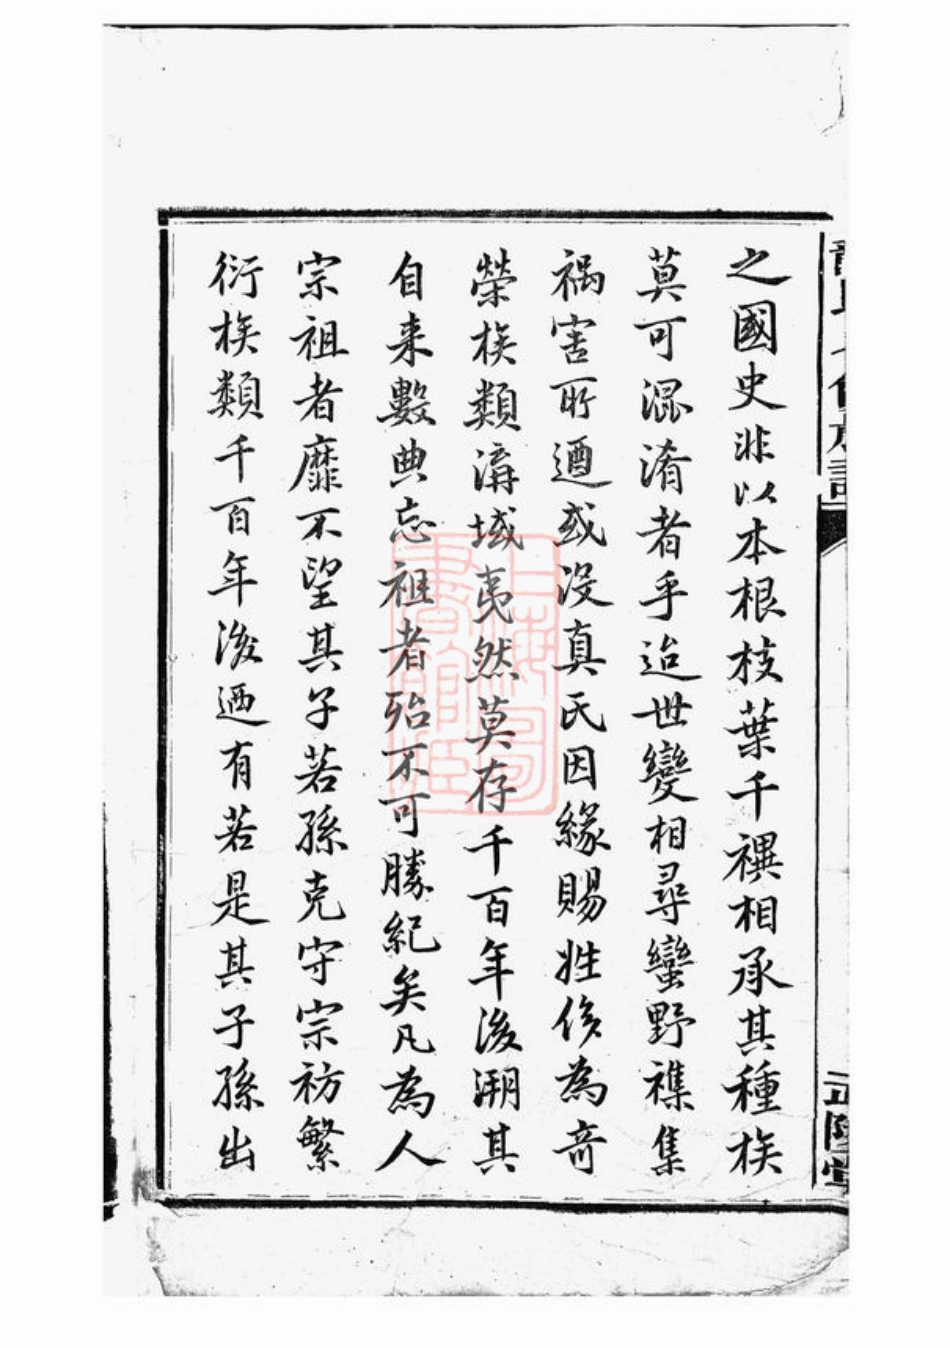 之國史非以本根枝葉千禩相承其種族
莫可混淆者乎迨世變相尋蠻野襍集
禍害所遭或沒真氏因緣賜姓侈為奇
榮族類溝域夷然莫存千百年後溯其
自来數典忘祖者殆不可勝紀矣凡為人
宗祖者靡不望其子若孫克守宗祊繁
衍族類千百年後迺有若是其子孫出
上海圖書館藏